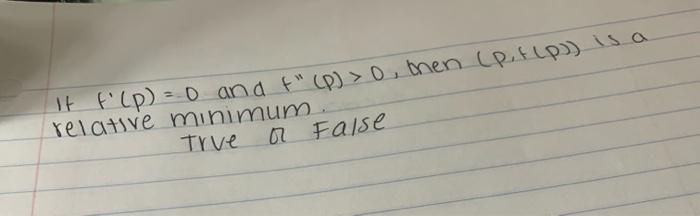 If f'(p) = 0 and f"(p) > 0, then (p, f(p)) is a
relative minimum.
True or False